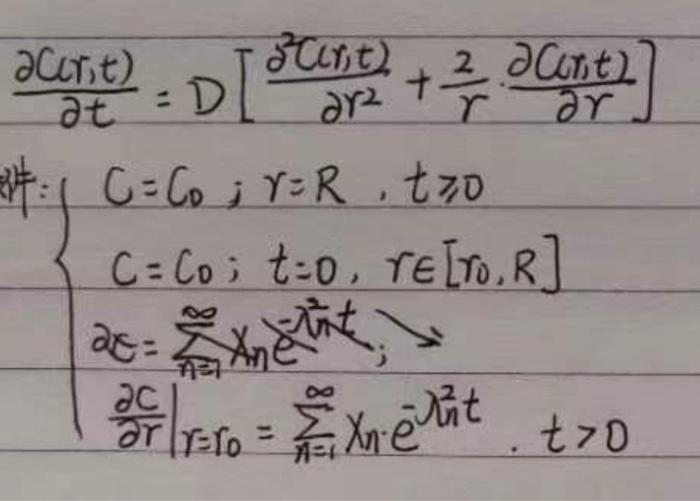 ∂C(r,t)/∂t = D[∂²C(r,t)/∂r² + 2/r · ∂C(r,t)/∂r]
件: C=C₀; r=R, t≥0
C=C₀; t=0, r∈[r₀,R]
∂C/∂r|r=r₀ = ∑_{n=1}^{∞} Xn·e^{-λn²t}. t>0